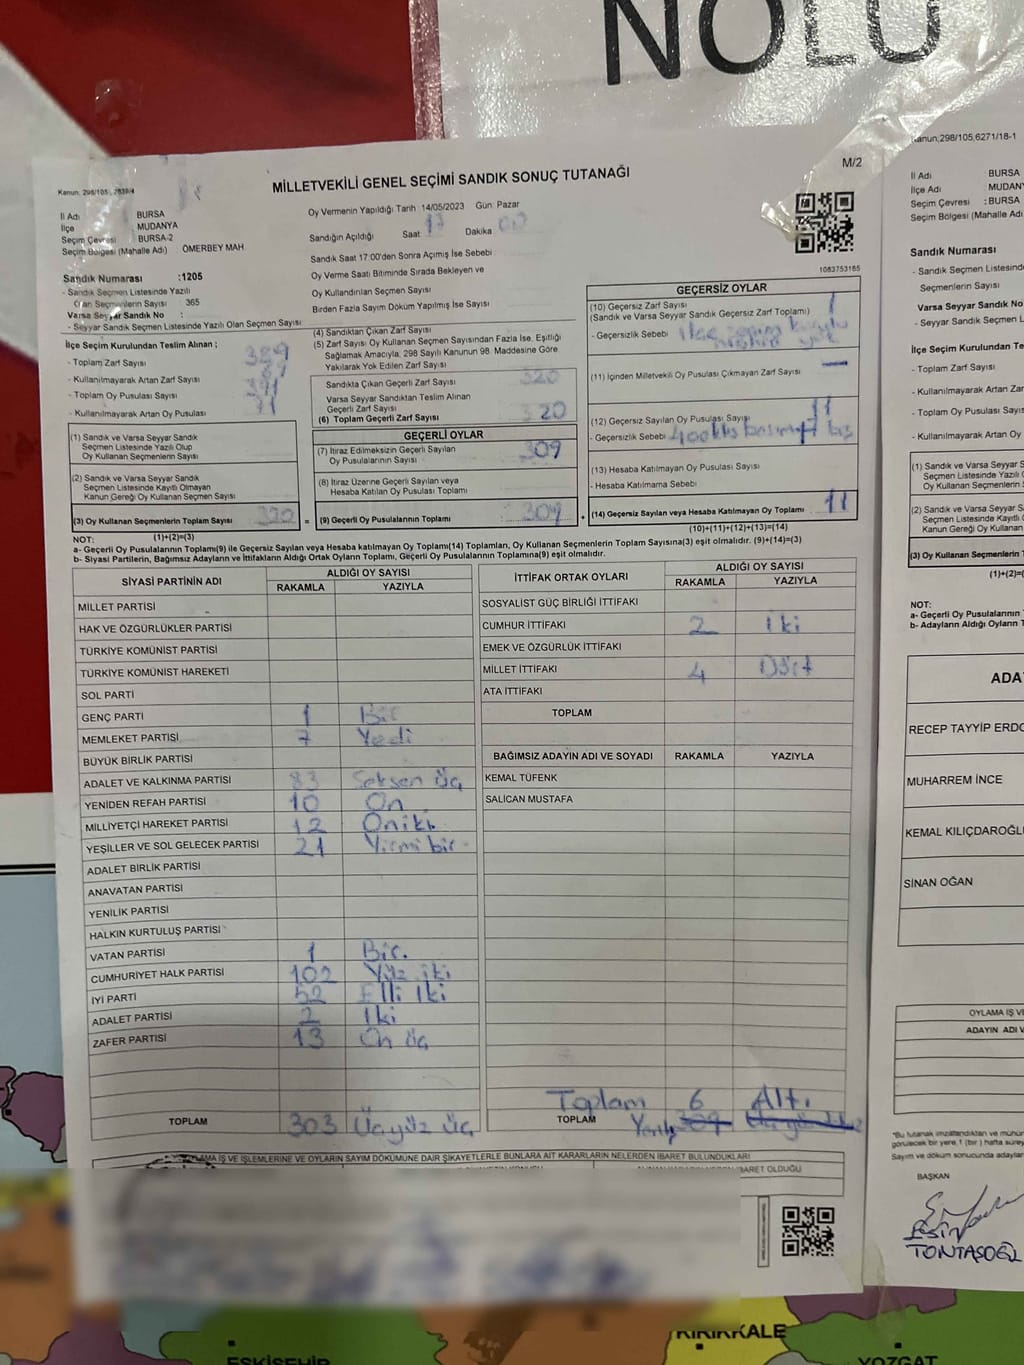 NOLU
Kanun; 298/105, 2839/4
M/2
MİLLETVEKİLİ GENEL SEÇİMİ SANDIK SONUÇ TUTANAĞI
İl Adı BURSA
İlçe MUDANYA
Seçim Çevresi BURSA-2
Seçim Bölgesi (Mahalle Adı) ÖMERBEY MAH.
Sandık Numarası :1205
- Sandık Seçmen Listesinde Yazılı
Olan Seçmenlerin Sayısı 365
Varsa Seyyar Sandık No :
- Seyyar Sandık Seçmen Listesinde Yazılı Olan Seçmen Sayısı
Oy Vermenin Yapıldığı Tarih 14/05/2023 Gün: Pazar
Sandığın Açıldığı Saat 17 Dakika 00
Sandık Saat 17:00'den Sonra Açımış İse Sebebi
Oy Verme Saati Bitiminde Sırada Bekleyen ve
Oy Kullandırılan Seçmen Sayısı
Birden Fazla Sayım Döküm Yapılmış İse Sayısı
1083753185
İlçe Seçim Kurulundan Teslim Alınan ;
- Toplam Zarf Sayısı 389
- Kullanılmayarak Artan Zarf Sayısı
- Toplam Oy Pusulası Sayısı 391
- Kullanılmayarak Artan Oy Pusulası 71
(1) Sandık ve Varsa Seyyar Sandık
Seçmen Listesinde Yazılı Olup
Oy Kullanan Seçmenlerin Sayısı
(2) Sandık ve Varsa Seyyar Sandık
Seçmen Listesinde Kayıtlı Olmayan
Kanun Gereği Oy Kullanan Seçmen Sayısı
(3) Oy Kullanan Seçmenlerin Toplam Sayısı 320 =
(1)+(2)=(3)
(4) Sandıktan Çıkan Zarf Sayısı
(5) Zarf Sayısı Oy Kullanan Seçmen Sayısından Fazla İse, Eşitliği
Sağlamak Amacıyla, 298 Sayılı Kanunun 98. Maddesine Göre
Yakılarak Yok Edilen Zarf Sayısı
Sandıkta Çıkan Geçerli Zarf Sayısı 320
Varsa Seyyar Sandıktan Teslim Alınan
Geçerli Zarf Sayısı
(6) Toplam Geçerli Zarf Sayısı 320
GEÇERLİ OYLAR
(7) İtiraz Edilmeksizin Geçerli Sayılan
Oy Pusulalarının Sayısı 309
(8) İtiraz Üzerine Geçerli Sayılan veya
Hesaba Katılan Oy Pusulası Toplamı
(9) Geçerli Oy Pusulalarının Toplamı 309 +
GEÇERSİZ OYLAR
(10) Geçersiz Zarf Sayısı 1
(Sandık ve Varsa Seyyar Sandık Geçersiz Zarf Toplamı)
- Geçersizlik Sebebi İlçe seçim kurulu
mührü yok
(11) İçinden Milletvekili Oy Pusulası Çıkmayan Zarf Sayısı —
(12) Geçersiz Sayılan Oy Pusulası Sayısı 11
- Geçersizlik Sebebi
(13) Hesaba Katılmayan Oy Pusulası Sayısı
- Hesaba Katılmama Sebebi
(14) Geçersiz Sayılan veya Hesaba Katılmayan Oy Toplamı 11
(10)+(11)+(12)+(13)=(14)
NOT:
a- Geçerli Oy Pusulalarının Toplamı(9) ile Geçersiz Sayılan veya Hesaba katılmayan Oy Toplamı(14) Toplamları, Oy Kullanan Seçmenlerin Toplam Sayısına(3) eşit olmalıdır. (9)+(14)=(3)
b- Siyasi Partilerin, Bağımsız Adayların ve İttifakların Aldığı Ortak Oyların Toplamı, Geçerli Oy Pusulalarının Toplamına(9) eşit olmalıdır.
SİYASİ PARTİNİN ADI ALDIĞI OY SAYISI
RAKAMLA YAZIYLA
MİLLET PARTİSİ
HAK VE ÖZGÜRLÜKLER PARTİSİ
TÜRKİYE KOMÜNİST PARTİSİ
TÜRKİYE KOMÜNİST HAREKETİ
SOL PARTİ
GENÇ PARTİ 1 Bir
MEMLEKET PARTİSİ 7 Yedi
BÜYÜK BİRLİK PARTİSİ
ADALET VE KALKINMA PARTİSİ 83 Seksen Üç
YENİDEN REFAH PARTİSİ 10 On
MİLLİYETÇİ HAREKET PARTİSİ 12 Oniki
YEŞİLLER VE SOL GELECEK PARTİSİ 21 Yirmi bir
ADALET BİRLİK PARTİSİ
ANAVATAN PARTİSİ
YENİLİK PARTİSİ
HALKIN KURTULUŞ PARTİSİ
VATAN PARTİSİ 1 Bir.
CUMHURİYET HALK PARTİSİ 102 Yüz iki
İYİ PARTİ 52 Elli İki
ADALET PARTİSİ 2 İki
ZAFER PARTİSİ 13 On üç
TOPLAM 303 Üçyüz Üç
İTTİFAK ORTAK OYLARI ALDIĞI OY SAYISI
RAKAMLA YAZIYLA
SOSYALİST GÜÇ BİRLİĞİ İTTİFAKI
CUMHUR İTTİFAKI 2 İki
EMEK VE ÖZGÜRLÜK İTTİFAKI
MİLLET İTTİFAKI 4 Dört
ATA İTTİFAKI
TOPLAM
BAĞIMSIZ ADAYIN ADI VE SOYADI RAKAMLA YAZIYLA
KEMAL TÜFENK
SALİCAN MUSTAFA
Toplam 6 Altı
TOPLAM 309
OYLAMA İŞ VE İŞLEMLERİNE VE OYLARIN SAYIM DÖKÜMÜNE DAİR ŞİKAYETLERLE BUNLARA AİT KARARLARIN NELERDEN İBARET BULUNDUKLARI
İBARET OLDUĞU
Kanun;298/105,6271/18-1
İl Adı : BURSA
İlçe Adı : MUDANY
Seçim Çevresi : BURSA
Seçim Bölgesi (Mahalle Adı)
Sandık Numarası
- Sandık Seçmen Listesinde
Seçmenlerin Sayısı
Varsa Seyyar Sandık No
- Seyyar Sandık Seçmen
İlçe Seçim Kurulundan Te
- Toplam Zarf Sayısı
- Kullanılmayarak Artan Zar
- Toplam Oy Pusulası Sayıs
- Kullanılmayarak Artan Oy
(1) Sandık ve Varsa Seyyar S
Seçmen Listesinde Yazılı O
Oy Kullanan Seçmenlerin
(2) Sandık ve Varsa Seyyar
Seçmen Listesinde Kayıtlı
Kanun Gereği Oy Kullanan
(3) Oy Kullanan Seçmenlerin T
(1)+(2)=(
NOT:
a- Geçerli Oy Pusulalarının
b- Adayların Aldığı Oyların T
ADA
RECEP TAYYİP ERDO
MUHARREM İNCE
KEMAL KILIÇDAROĞLU
SİNAN OĞAN
OYLAMA İŞ VE
ADAYIN ADI V
*Bu tutanak imzalandıktan ve mühür
görülecek bir yere, 1 (bir) hafta sürey
Sayım ve döküm sonucunda adaylar
BAŞKAN
ESİN
TONTAŞOĞL
KIRIKKALE
ESKİŞEHİR
YOZGAT